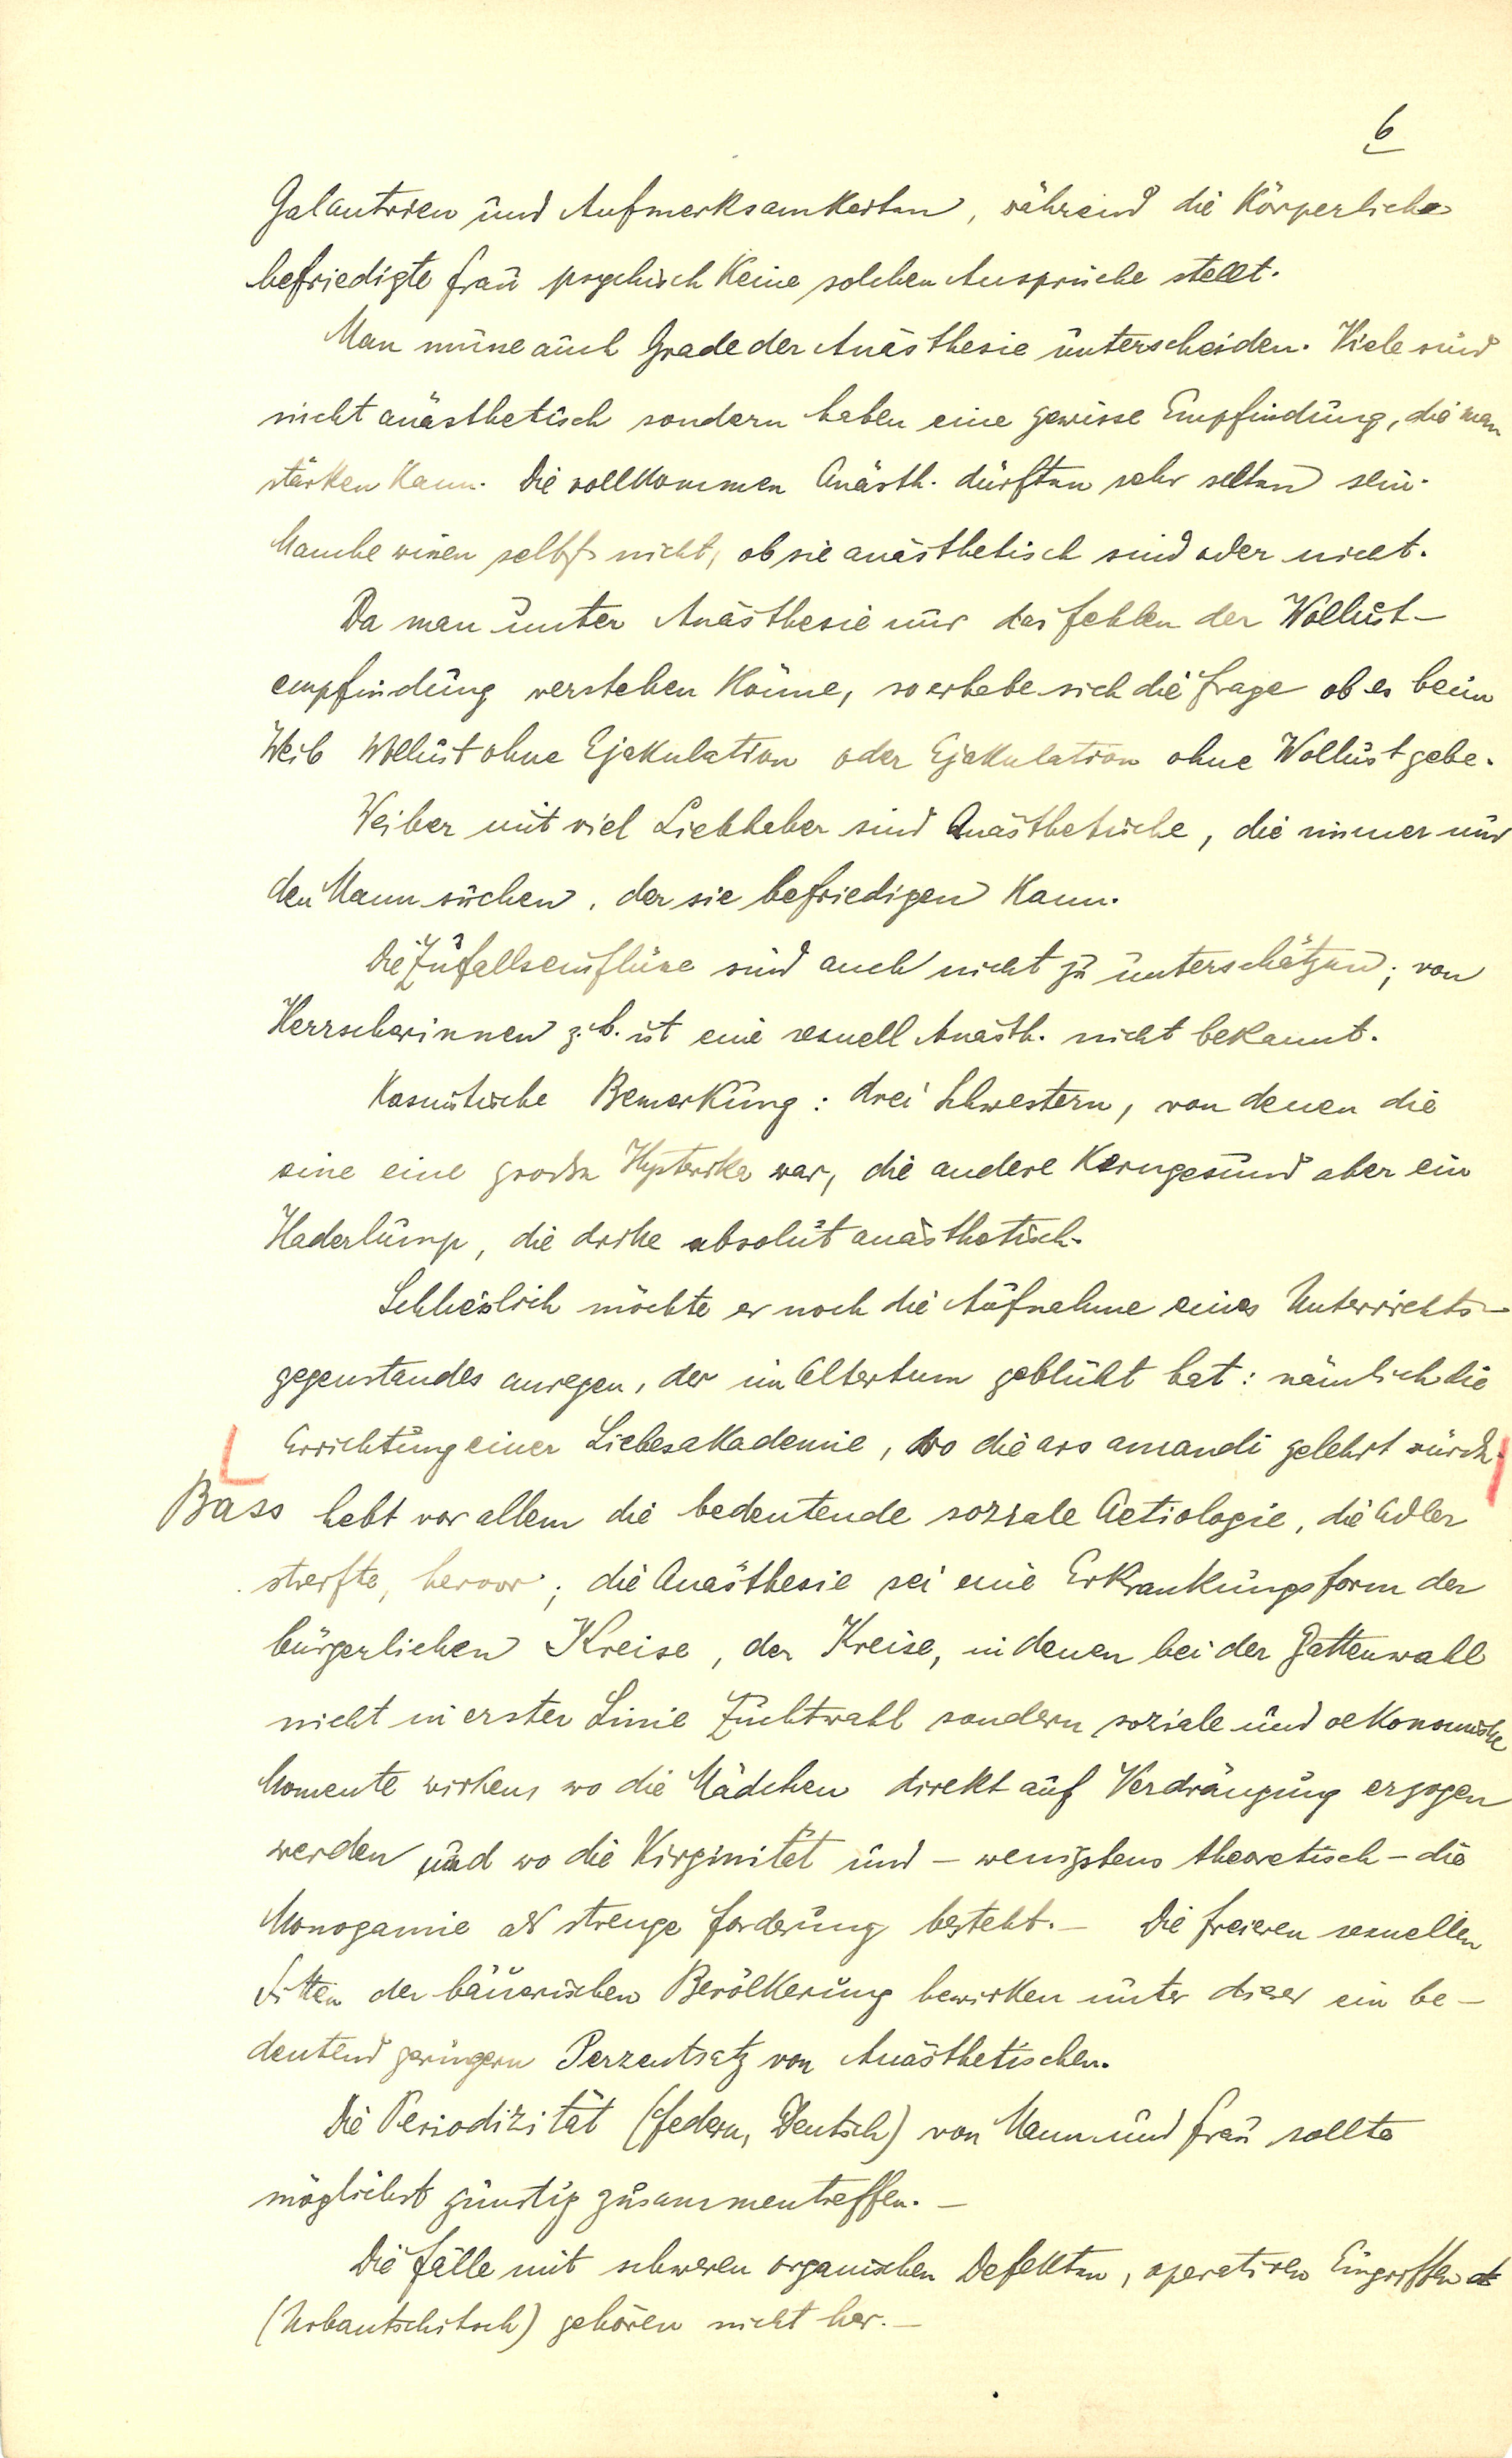 6
Galantrien und Aufmerksamkeiten, während die körperliche
befriedigte Frau psychisch keine solchen Ansprüche stellt.
Man müsse auch Grade der Anästhesie unterscheiden. Viele sind
nicht anästhetisch sondern haben eine gewisse Empfindung, die man
stärken kann. Die vollkommen Anästh. dürften sehr selten sein.
Manche wissen selbst nicht, ob sie anästhetisch sind oder nicht.
Da man unter Anästhesie nur das Fehlen der Wollust-
empfindung verstehen könne, so erhebe sich die Frage ob es beim
Weib Wollust ohne Ejakulation oder Ejakulation ohne Wollust gebe.
Weiber mit viel Liebhaber sind Anästhetische, die immer nur
den Mann suchen, der sie befriedigen kann.
Die Zufallseinflüsse sind auch nicht zu unterschätzen; von
Herrscherinnen z.b. ist eine sexuell Anästh. nicht bekannt.
Kasuistische Bemerkung: drei Schwestern, von denen die
eine eine große Hysterika war, die andere kerngesund aber ein
Haderlump, die dritte absolut anästhetisch.
Schließlich möchte er noch die Aufnahme eines Unterrichts-
gegenstandes anregen, der im Altertum geblüht hat: nämlich die
Errichtung einer Liebesakademie, wo die ars amandi gelehrt würde.
Bass hebt vor allem die bedeutende soziale Aetiologie, die Adler
streifte, hervor; die Anästhesie sei eine Erkrankungsform der
bürgerlichen Kreise, der Kreise, in denen bei der Gattenwahl
nicht in erster Linie Zuchtwahl sondern soziale und oekonomische
Momente wirken, wo die Mädchen direkt auf Verdrängung erzogen
werden und wo die Virginität und – wenigstens theoretisch – die
Monogamie als strenge Forderung besteht. – Die freieren sexuellen
Sitten der bäuerischen Bevölkerung bewirken unter dieser ein be-
deutend geringern Perzentsatz von Anästhetischen.
Die Periodizität (Federn, Deutsch) von Mann und Frau sollte
möglichst günstig zusammentreffen. –
Die Fälle mit schweren organischen Defekten, operativen Eingriffen
(Urbantschitsch) gehören nicht her. –